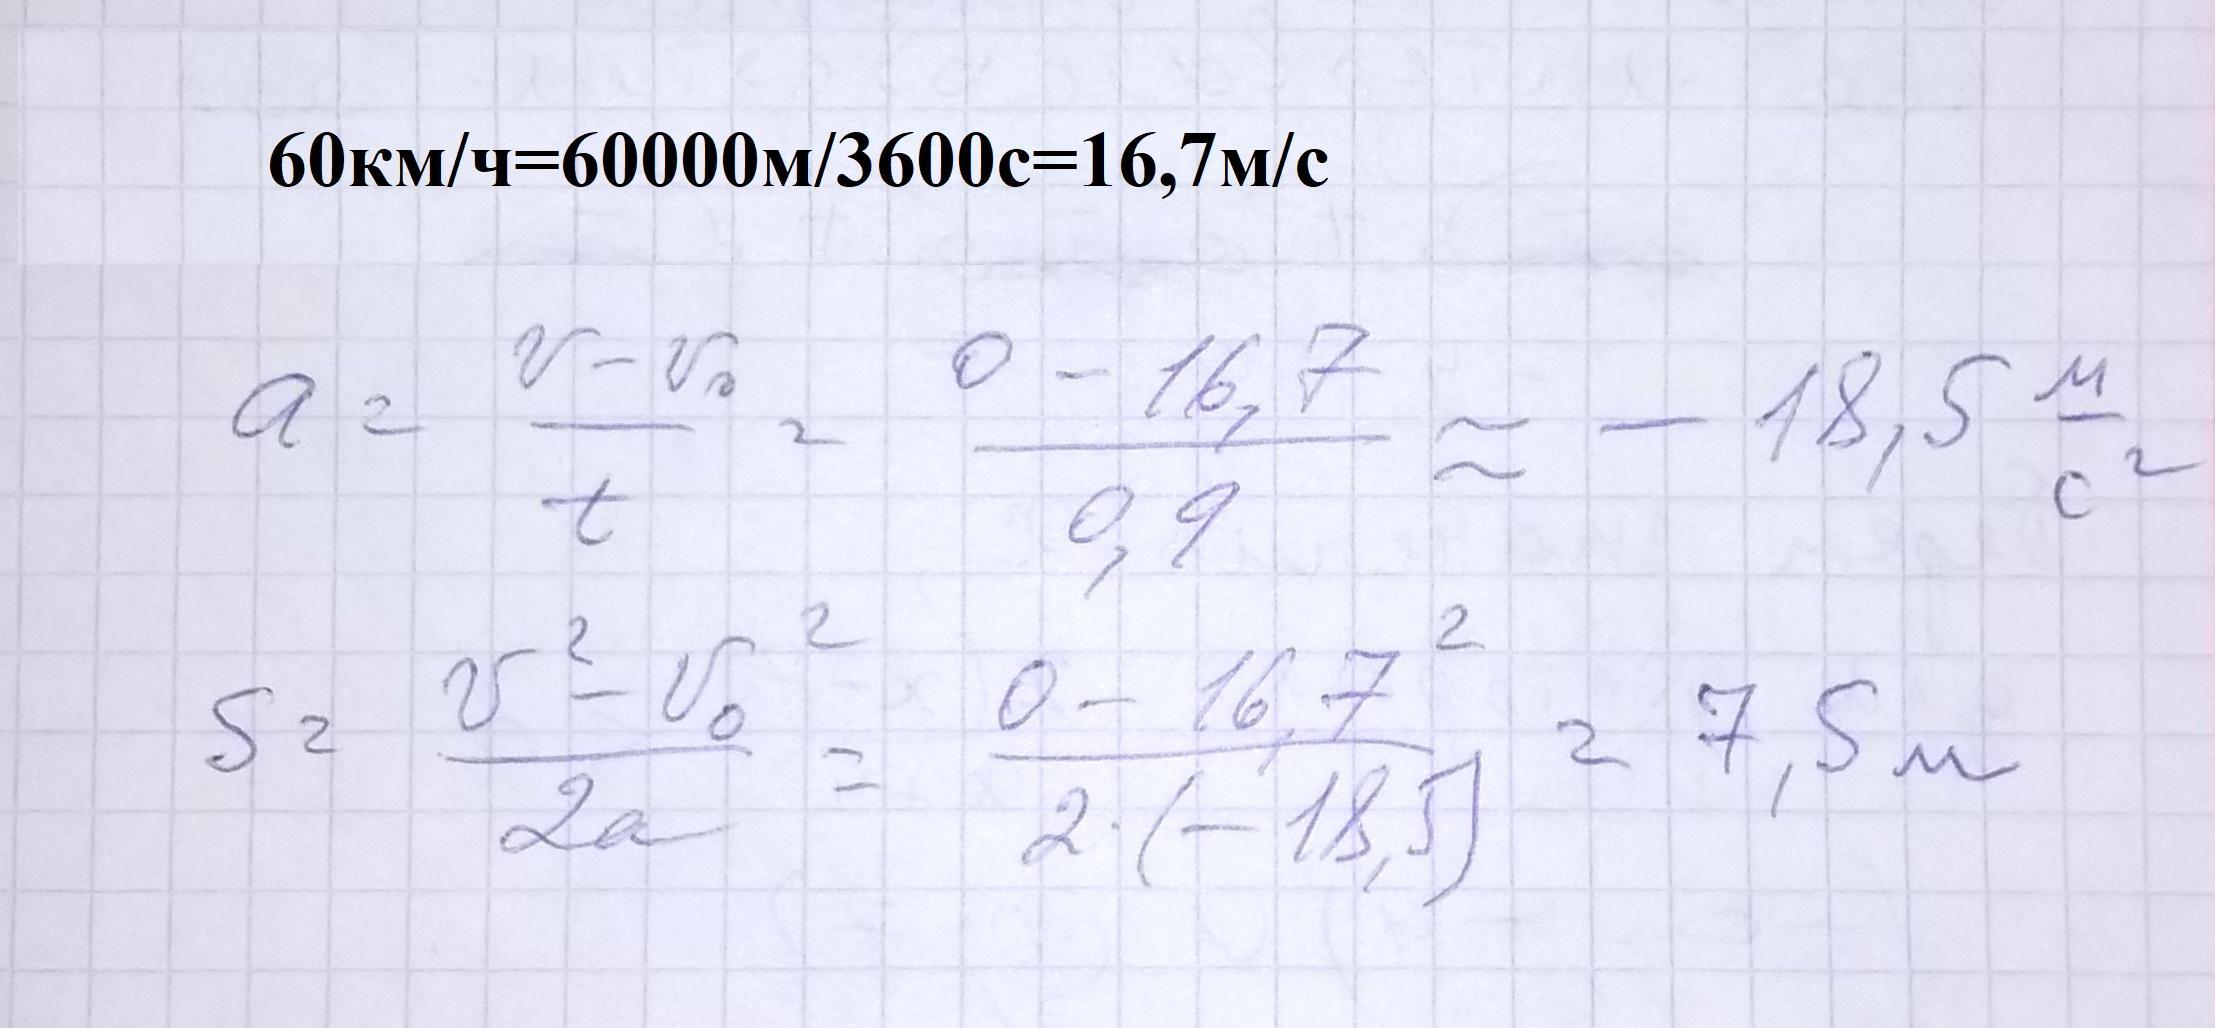 60км/ч=60000м/3600с=16,7м/с
a = (v - v₀)/t = (0 - 16,7)/0,9 ≈ - 18,5 м/с²
S = (v² - v₀²)/2a = (0 - 16,7²)/(2·(-18,5)) = 7,5 м